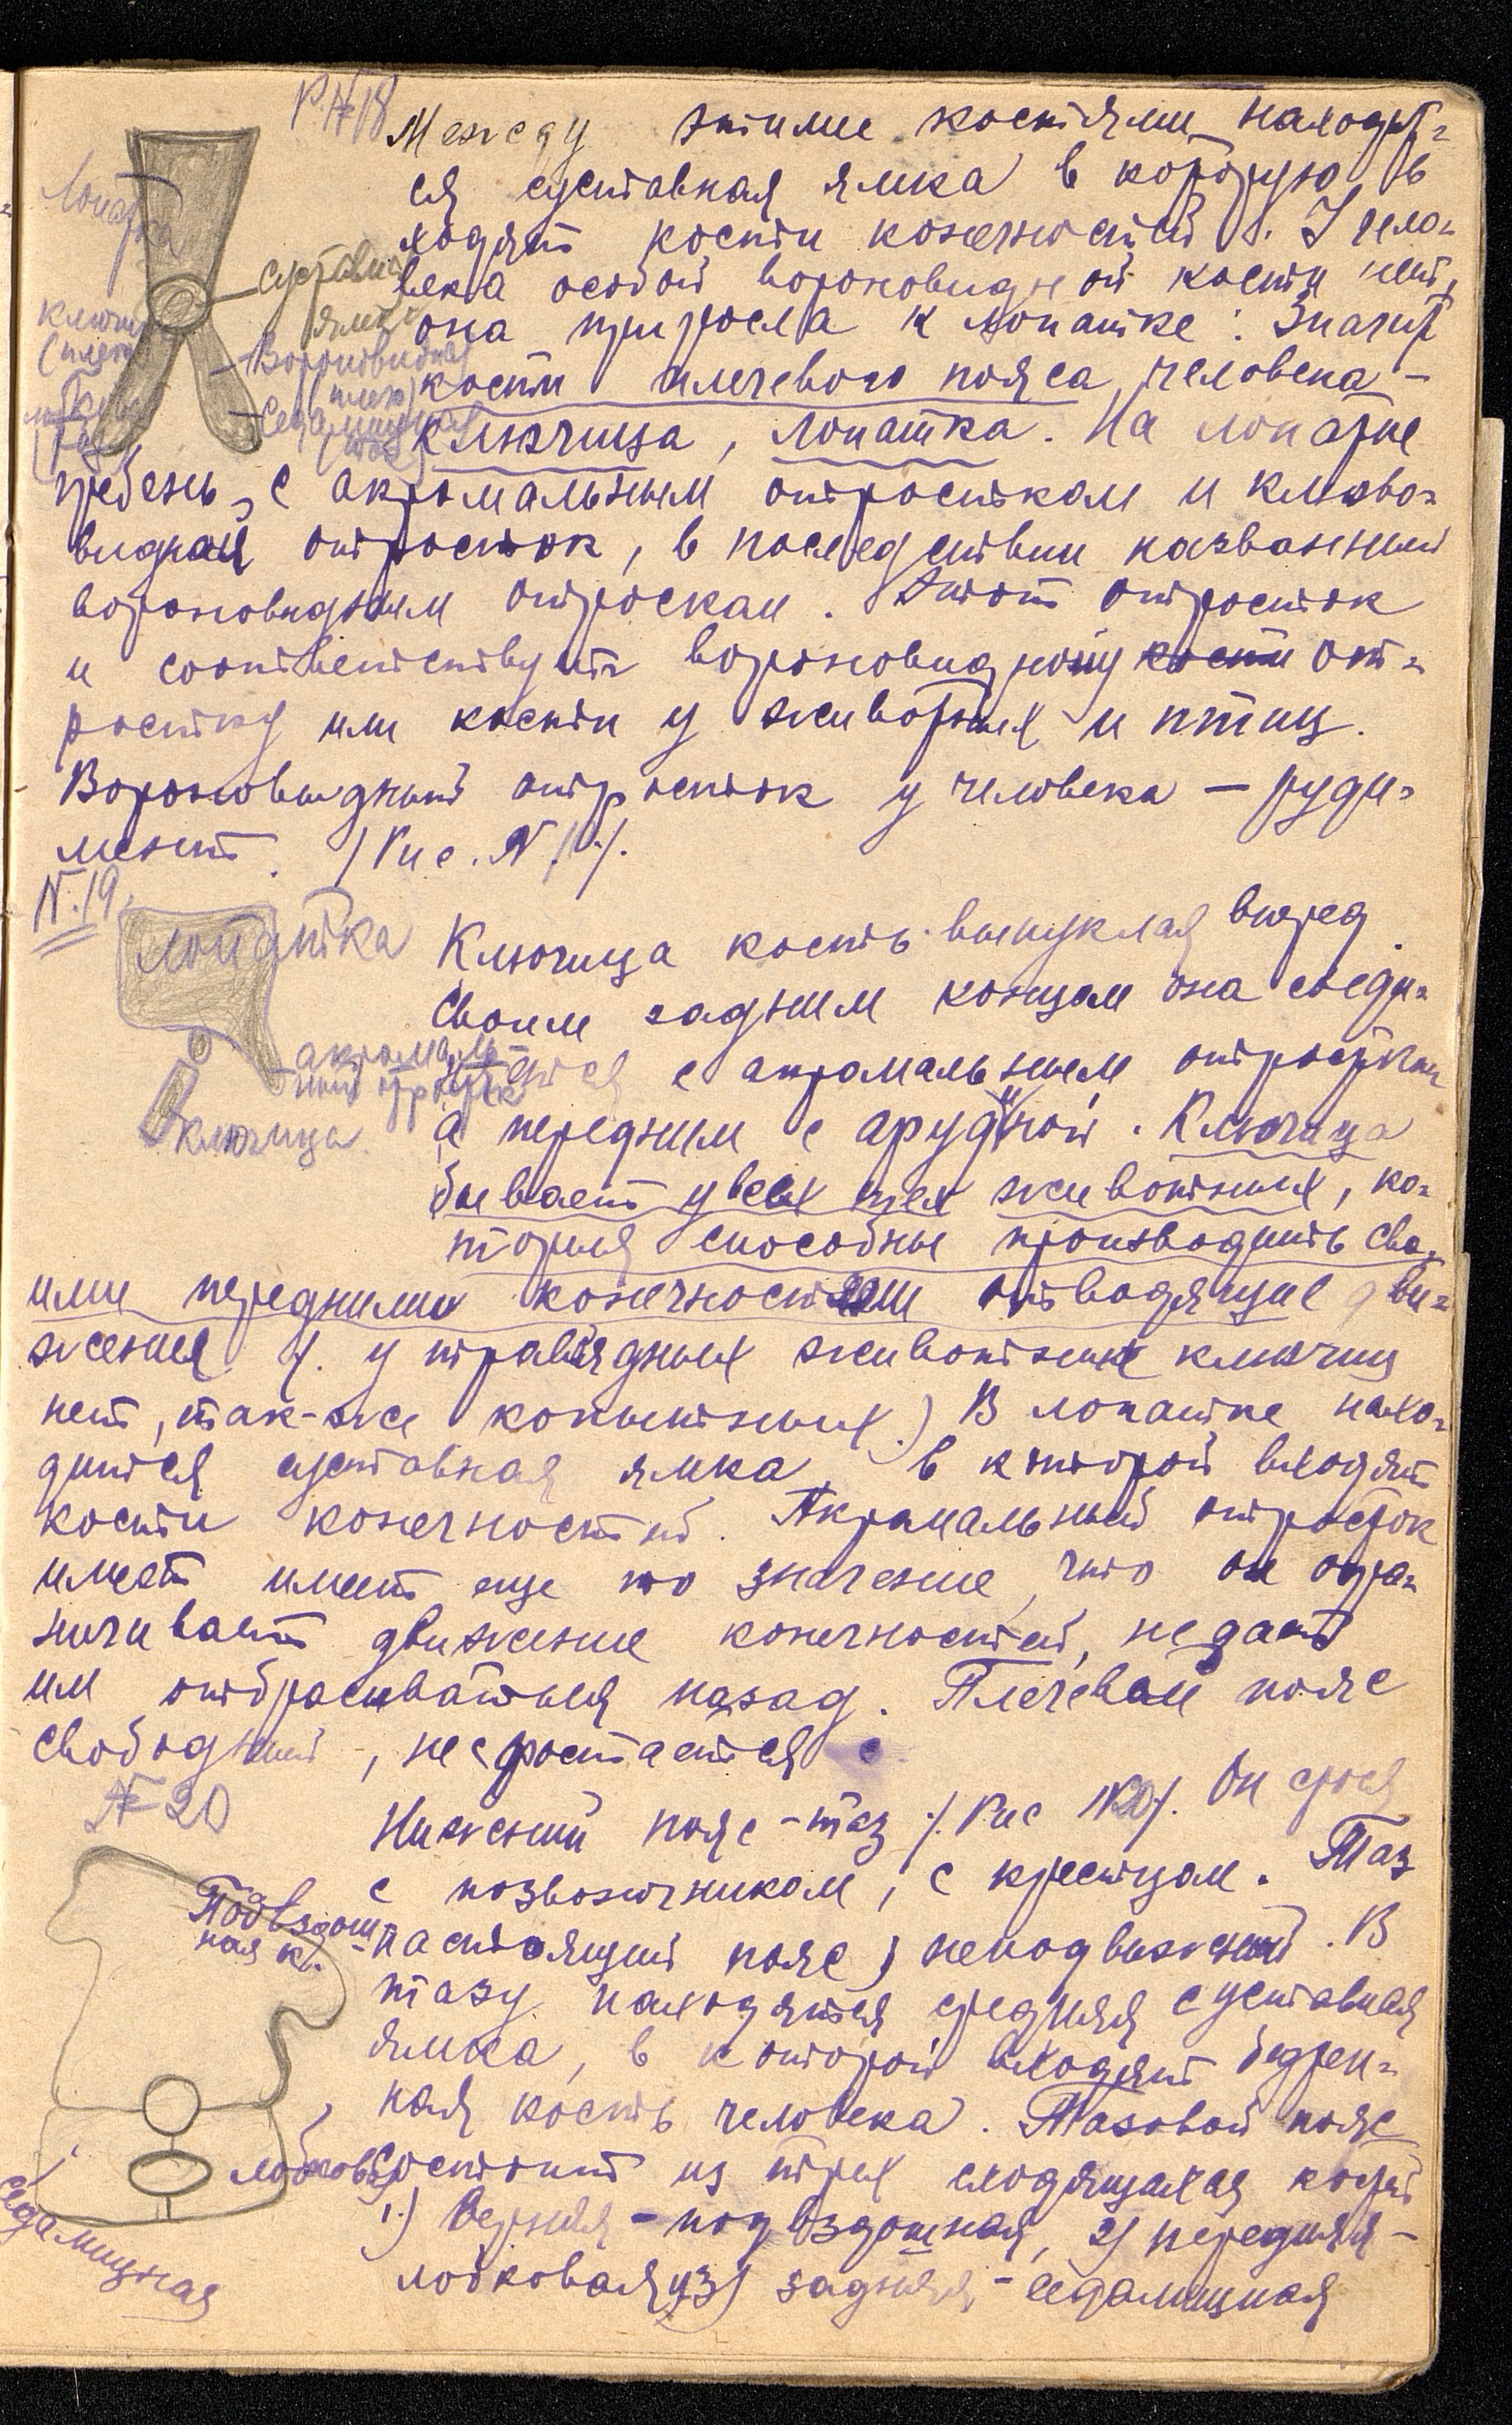 Р. №18
Между этими костями находит-
ся суставная ямка в которую в
ходят кости конечностей. У чело-
века особой вороновидной кости нет,
она приросла к лопатке. Значит
кости плечевого пояса человека –
ключица, лопатка. На лопатке
гребень с акромальным отростком и клюво-
видный отросток, в последствии названный
вороновидным отроском. Этот отросток
и соответствует вороновидному кости от-
ростку или кости у животных и птиц.
Вороновидный отросток у человека – руди-
мент. /Рис. №
Лопатка
суставная
ямка
Вороновидная
(плечо)
Седалищная
(таз)
N. 19.
лопатка
акромаль-
ный отросток
ключица
Ключица кость выпуклая вперед.
Своим задним концом она соеди-
няется с акромальным отростком
а передним с грудной. Ключица
бывает у всех тех животных, ко-
торыя способны производить сво-
ими передними конечностями отводящие дви-
жения /. у травоядных животных ключиц
нет, так-же копытных.) В лопатке нахо-
дится суставная ямка, в которой входят
кости конечностей. Акромальный отросток
имеет имеет еще то значение, что он огра-
ничивает движение конечностей, не дает
им отбрасываться назад. Плечевой пояс
свободный, не сростается.
№ 20
Нижений пояс – таз /. Рис №20/. Он сросся
с позвоночником, с крестцом. Таз
настоящий пояс, неподвижный. В
тазу находятся средняя суставная
ямка, в которой входят бедрен-
ная кость человека. Тазовой пояс
состоит из трех сходящихся костей
1.) Верхняя – подвздошная, 2) передняя –
лобковая, 3) задняя – седалищная
Подвздош-
ная к.
лобковая
седалищная